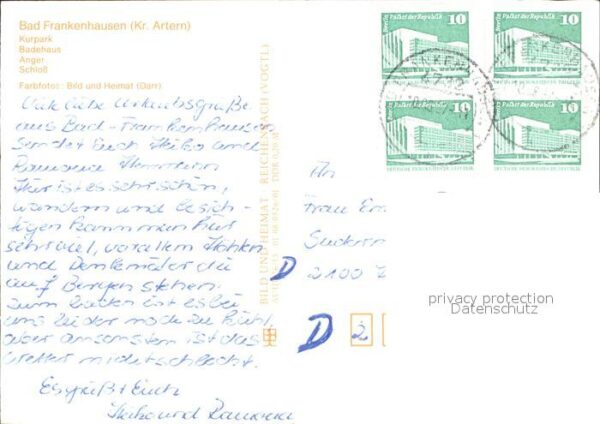 Bad Frankenhausen (Kr. Artern)
Kurpark
Badehaus
Anger
Schloß
Farbfotos: Bild und Heimat (Darr)
Viele liebe Urlaubsgrüße
aus Bad-Frankenhausen
sendet Euch Heiko und
Ramona
Hier ist es sehr schön,
wandern und besich-
tigen kann man hier
sehr viel, vor allem Höhlen
und Denkmäler die
auf Bergen stehen.
Zum Baden ist es bei
uns leider noch zu kühl,
aber ansonsten ist das
Wetter nicht schlecht.
Es grüßt Euch
Heiko und Ramona
BILD UND HEIMAT REICHENBACH (VOGTL)
An
Frau
2100
D
D 2
Berlin Palast der Republik 10
DEUTSCHE DEMOKRATISCHE REPUBLIK
Berlin Palast der Republik 10
DEUTSCHE DEMOKRATISCHE REPUBLIK
Berlin Palast der Republik 10
DEUTSCHE DEMOKRATISCHE REPUBLIK
Berlin Palast der Republik 10
DEUTSCHE DEMOKRATISCHE REPUBLIK
privacy protection
Datenschutz